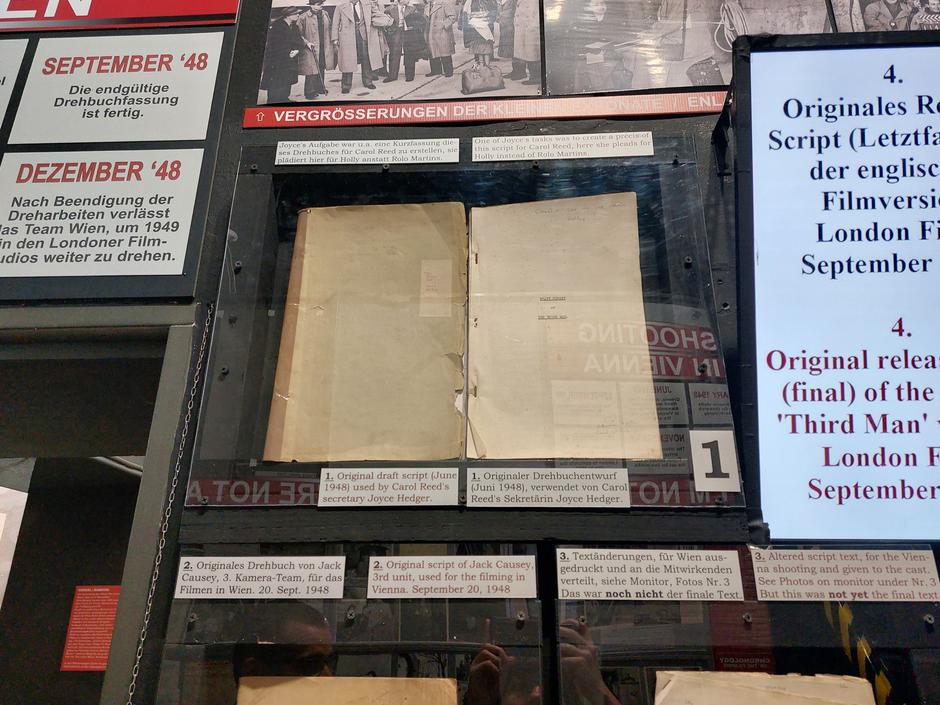 EN
SEPTEMBER ‘48
Die endgültige
Drehbuchfassung
ist fertig.
DEZEMBER ‘48
Nach Beendigung der
Dreharbeiten verlässt
das Team Wien, um 1949
in den Londoner Film-
udios weiter zu drehen.
⇧ VERGRÖSSERUNGEN DER KLEINEN EXPONATE // ENL
Joyce's Aufgabe war u.a. eine Kurzfassung die-
ses Drehbuches für Carol Reed zu erstellen, sie
plädiert hier für Holly anstatt Rolo Martins.
One of Joyce's tasks was to create a précis of
this script for Carol Reed, here she pleads for
Holly instead of Rolo Martins.
THE THIRD MAN
SHOOTING
IN VIENNA
1
1. Original draft script (June
1948) used by Carol Reed's
secretary Joyce Hedger.
1. Originaler Drehbuchentwurf
(Juni 1948), verwendet von Carol
Reed's Sekretärin Joyce Hedger.
2. Originales Drehbuch von Jack
Causey, 3. Kamera-Team, für das
Filmen in Wien. 20. Sept. 1948
2. Original script of Jack Causey,
3rd unit, used for the filming in
Vienna. September 20, 1948
3. Textänderungen, für Wien aus-
gedruckt und an die Mitwirkenden
verteilt, siehe Monitor, Fotos Nr.3
Das war noch nicht der finale Text.
3. Altered script text, for the Vien-
na shooting and given to the cast.
See Photos on monitor under Nr. 3
But this was not yet the final text
4.
Originales Re
Script (Letztfa
der englisc
Filmversi
London Fi
September
4.
Original relea
(final) of the
'Third Man'
London F
September
CHRONOLOGY